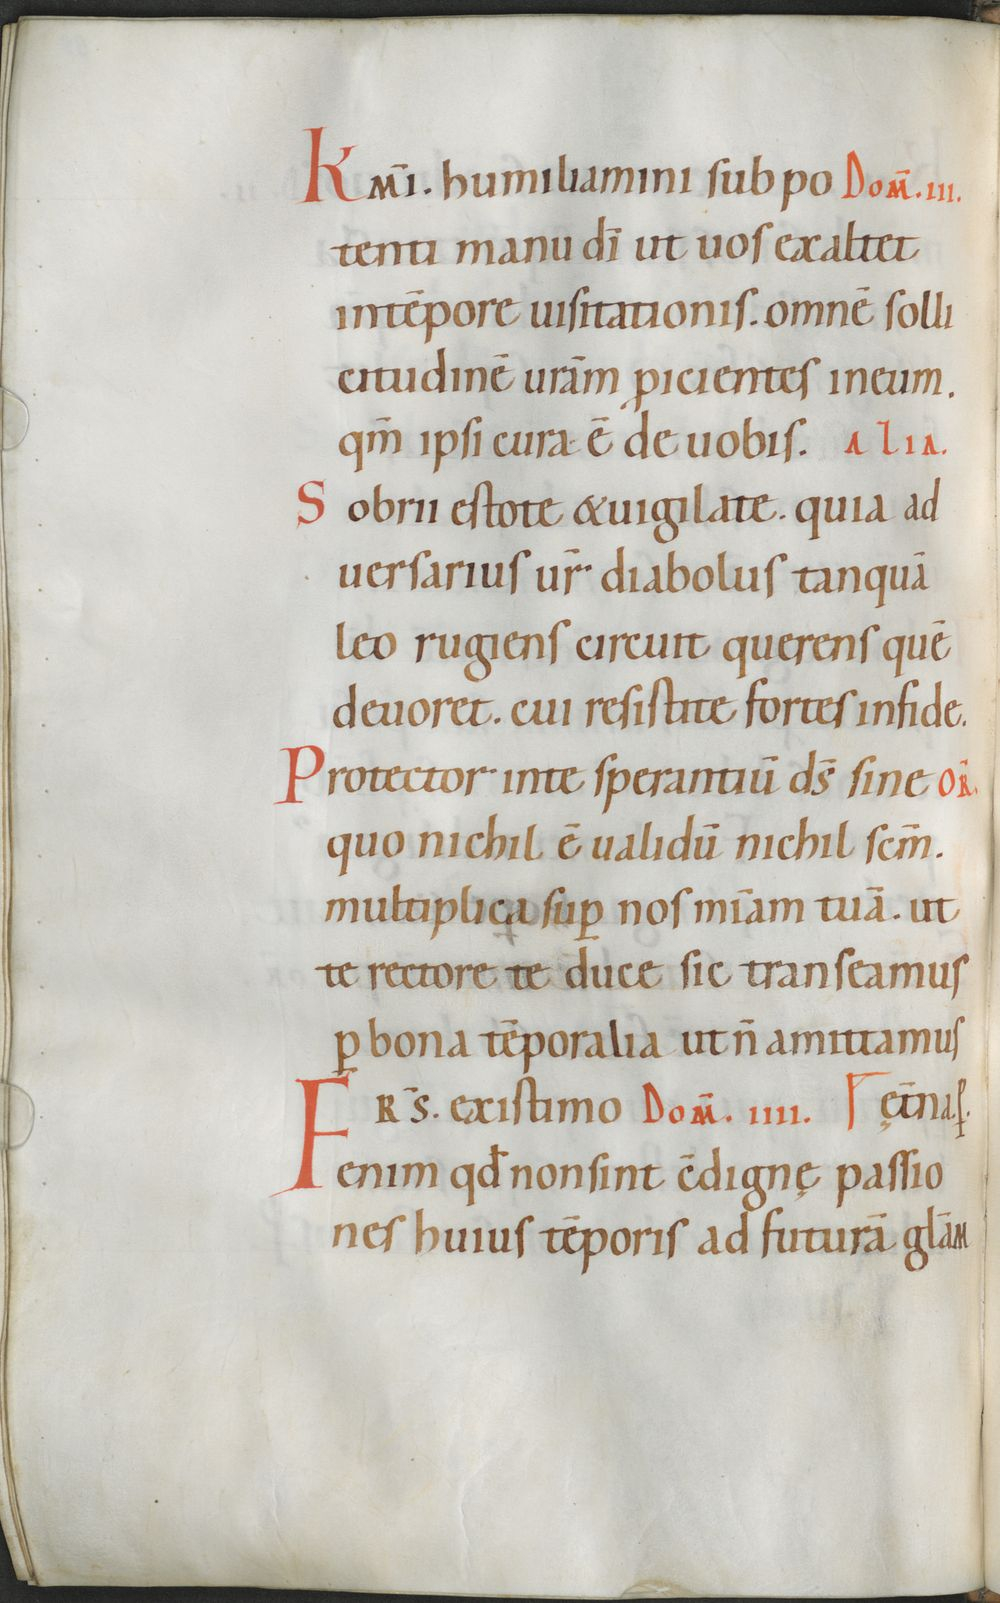 Km̄i. humiliamini sub po Dom̄.iii.
tenti manu dī ut uos exaltet
intēpore uisitationis. omnē solli
citudinē urām ꝓicientes ineum.
qm̄ ipsi cura ē de uobis. alia.
Sobrii estote &uigilate. quia ad
uersarius ur̄ diabolus tanquā
leo rugiens circuit querens quē
deuoret. cui resistite fortes infide.
Protector inte sperantiū ds̄ sine oR̄.
quo nichil ē ualidū nichil scm̄.
multiplica suꝑ nos mīam tuā. ut
te rectore te duce sic transeamus
ꝑ bona tēporalia ut n̄ amittamus
FRs̄. existimo Dom̄. iiii. ęt̄na.ꝑ.
enim qđ non sint c̄dignę passio
nes huius tēporis ad futurā glām